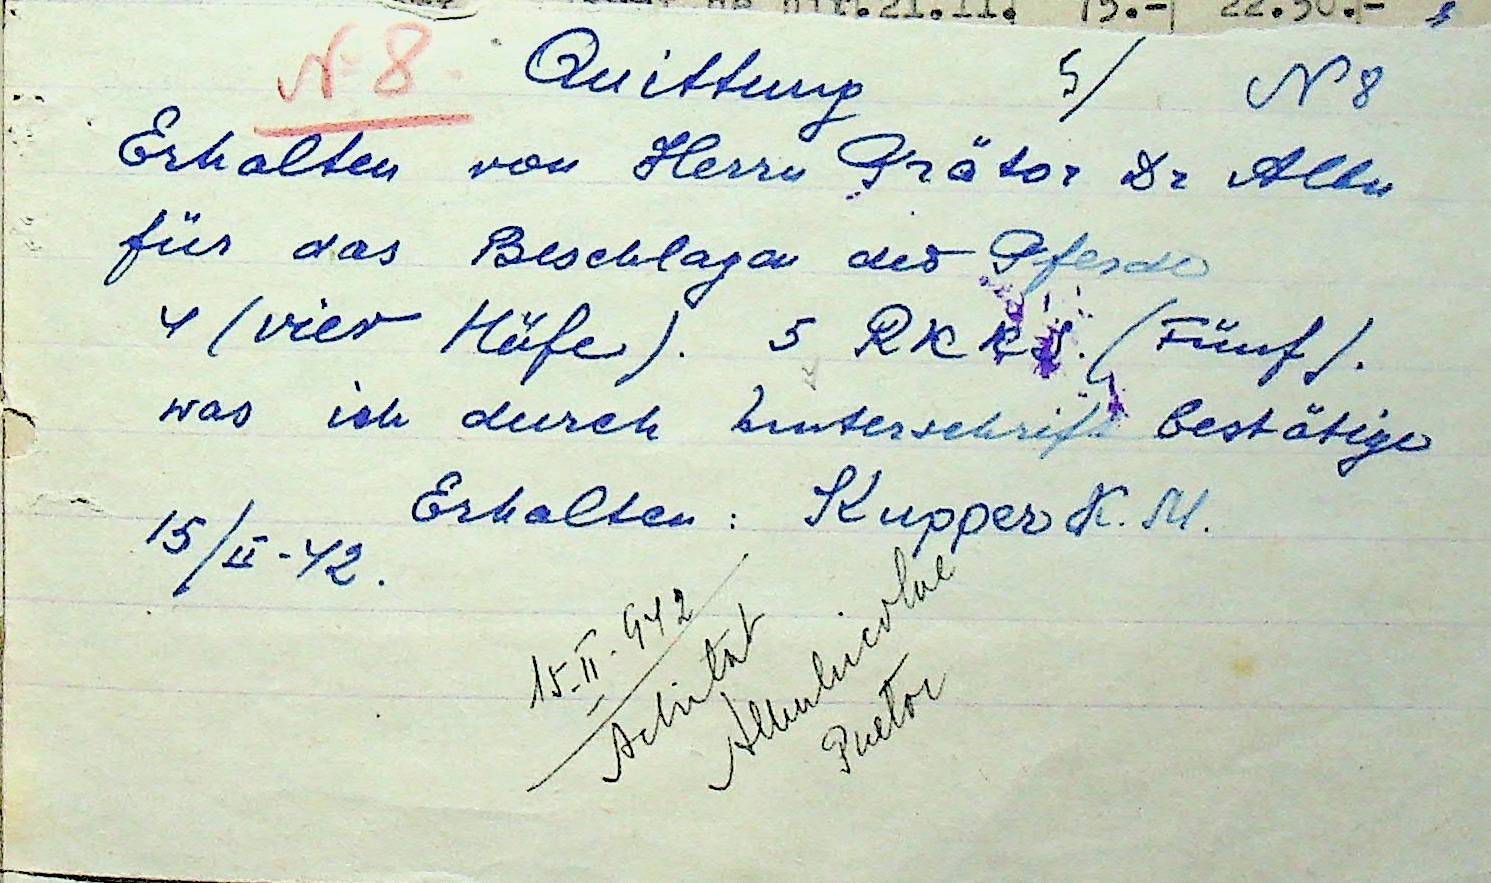 21.11. 75.- 22.50.-
N 8. Quittung 5/ N 8
Erhalten von Herrn Prätor Dr Albu
für das Beschlagen des Pferde
4 (vier Häfe). 5 RKKS. (Fünf).
was ich durch Unterschrift bestätige
Erhalten: Kupper K. M.
15/II-42.
15-II-942
Achitat
Albu Nicolae
Pretor